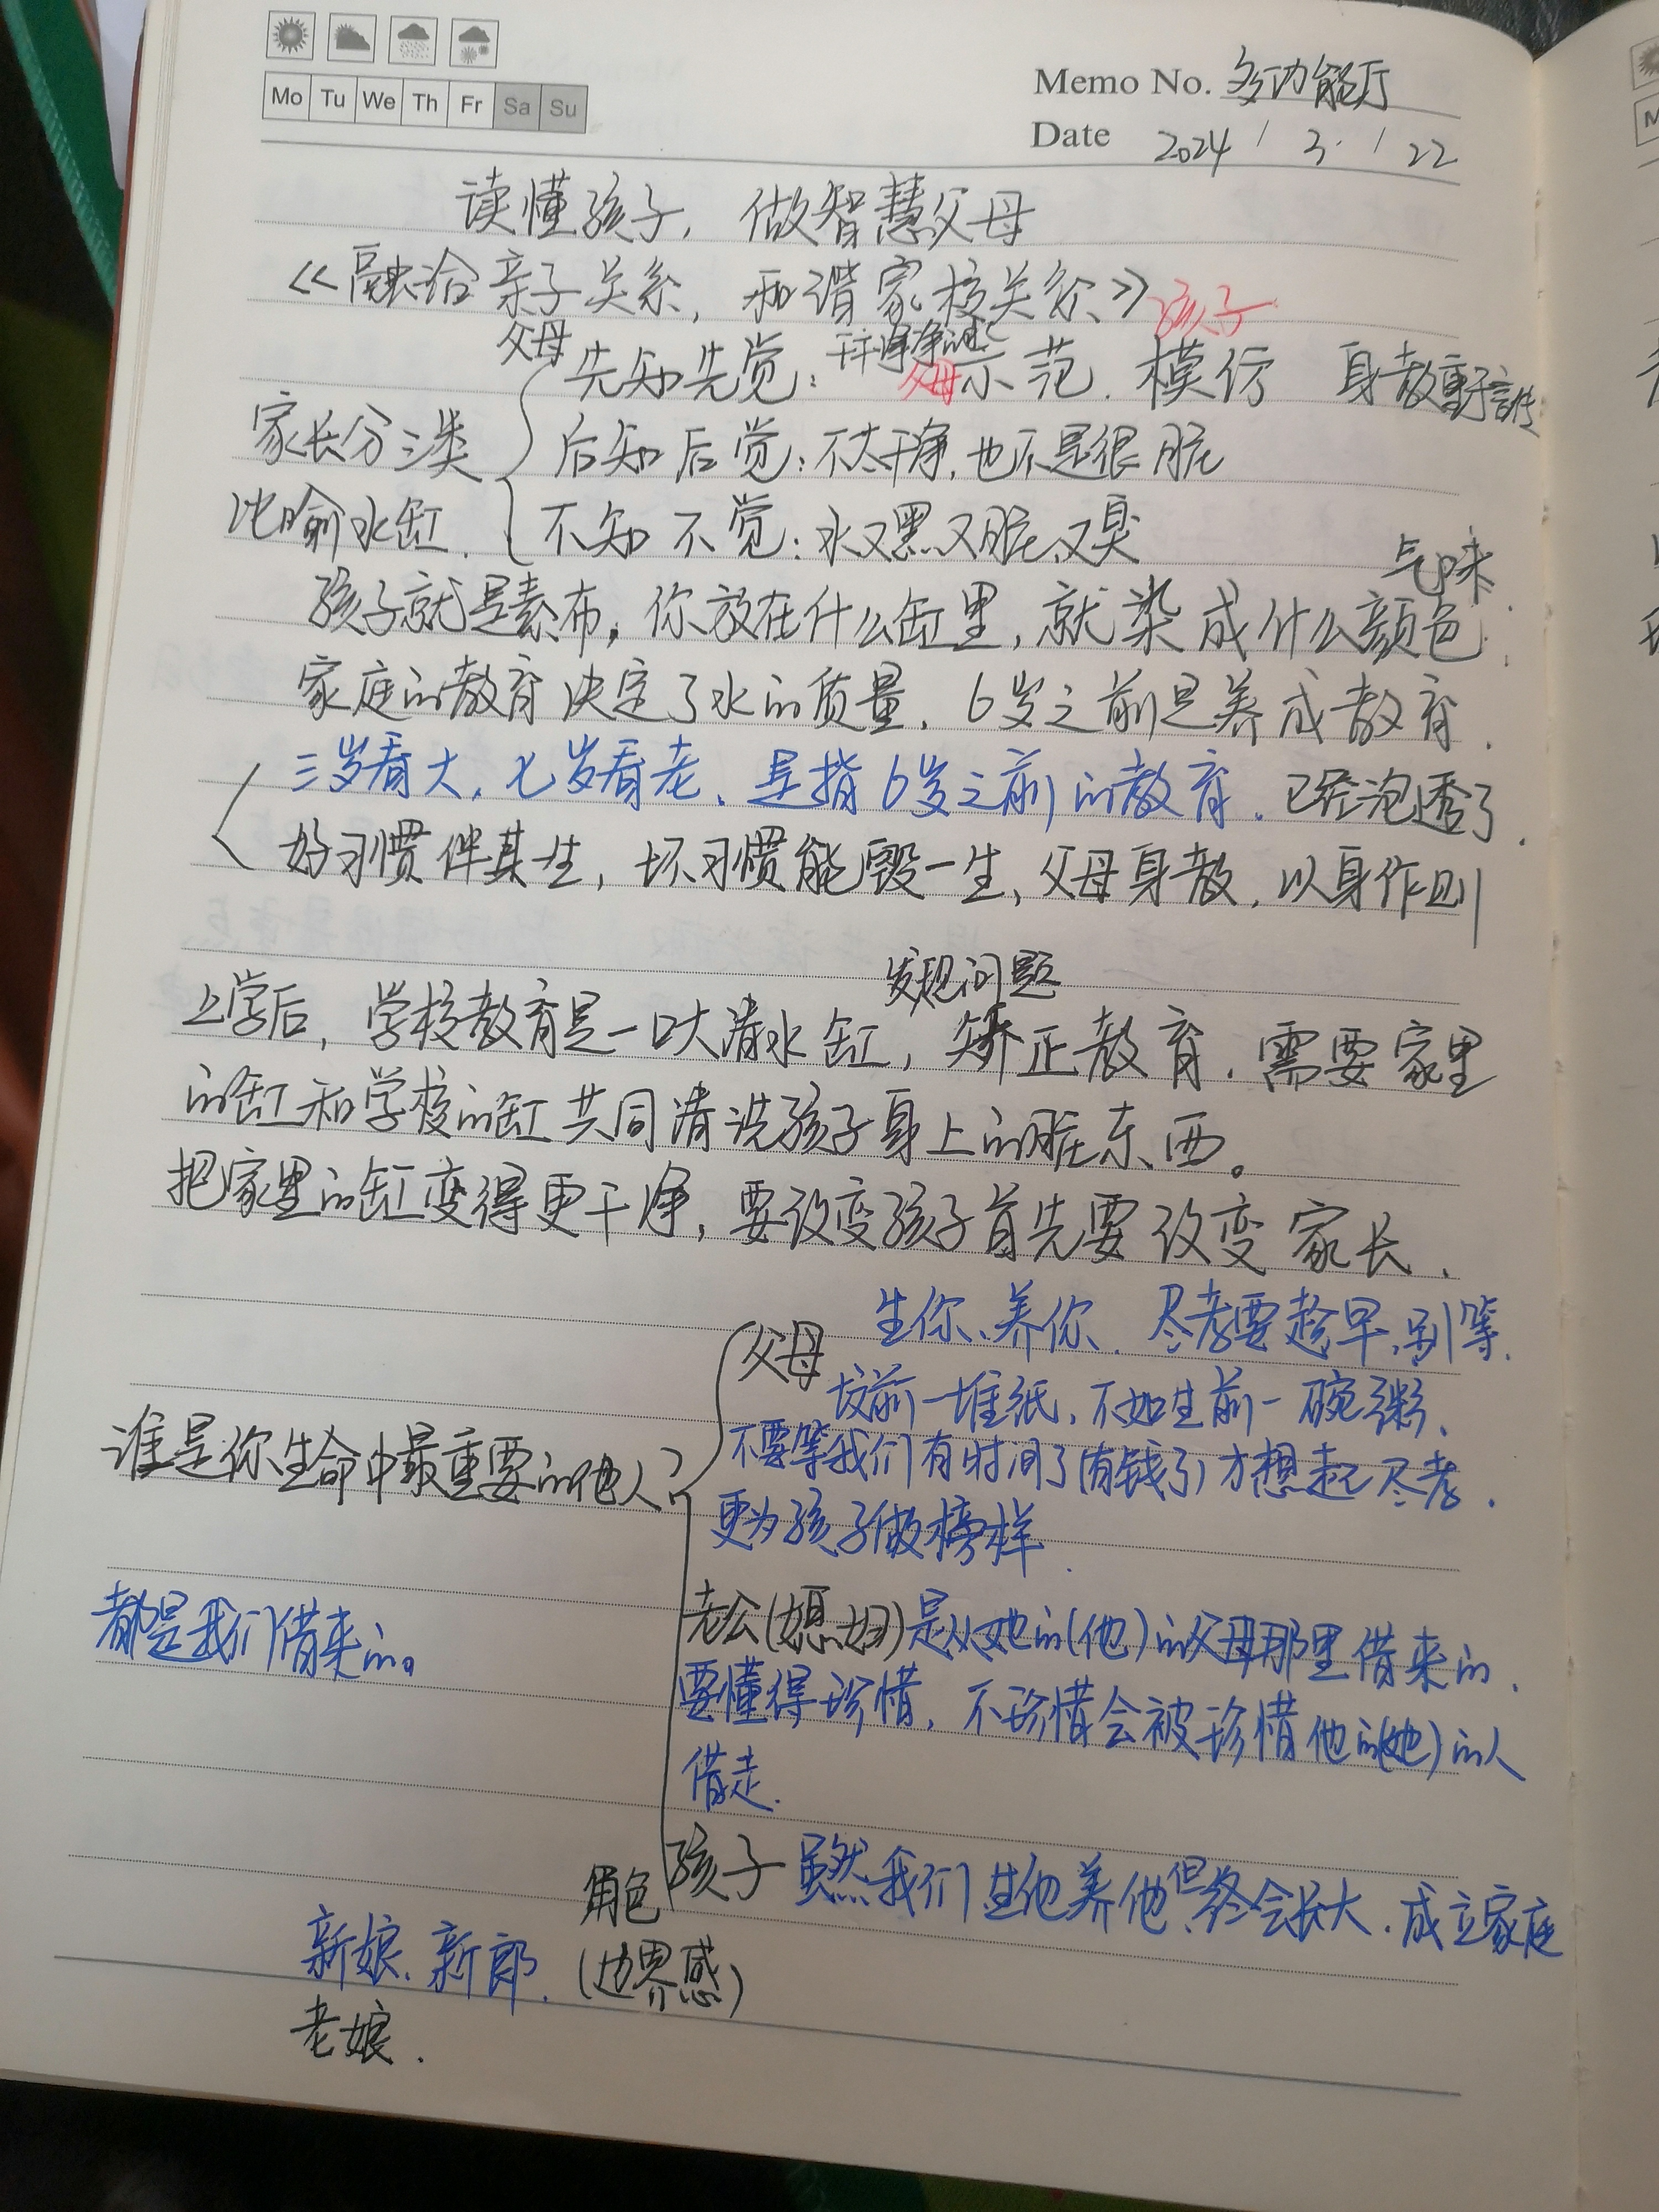 Mo Tu We Th Fr Sa Su
Memo No. 多功能厅
Date 2024 / 3. / 22
读懂孩子，做智慧父母
《融洽亲子关系，和谐家校关系》孩子
父母 干干净净的
先知先觉：父母示范．模仿 身教重于言传
家长分三类 后知后觉：不太干净，也不是很脏
比喻水缸． 不知不觉：水又黑又脏又臭
气味
孩子就是素布，你放在什么缸里，就染成什么颜色．
家庭的教育决定了水的质量．6岁之前是养成教育．
三岁看大，七岁看老、是指6岁之前的教育．已经泡透了．
好习惯伴其一生，坏习惯能毁一生，父母身教，以身作则
发现问题
上学后，学校教育是一口大清水缸，矫正教育．需要家里
的缸和学校的缸共同清洗孩子身上的脏东西。
把家里的缸变得更干净，要改变孩子首先要改变家长．
父母 生你、养你．尽孝要趁早，别等．
坟前一堆纸，不如生前一碗粥．
谁是你生命中最重要的他人？ 不要等我们有时间了(有钱了)才想起尽孝．
更为孩子做榜样．
都是我们借来的。 老公(媳妇)是从她的(他)的父母那里借来的．
要懂得珍惜，不珍惜会被珍惜他的(她)的人
借走．
角色 孩子 虽然我们生他养他，但终会长大．成立家庭
新娘．新郎．(边界感)
老娘．